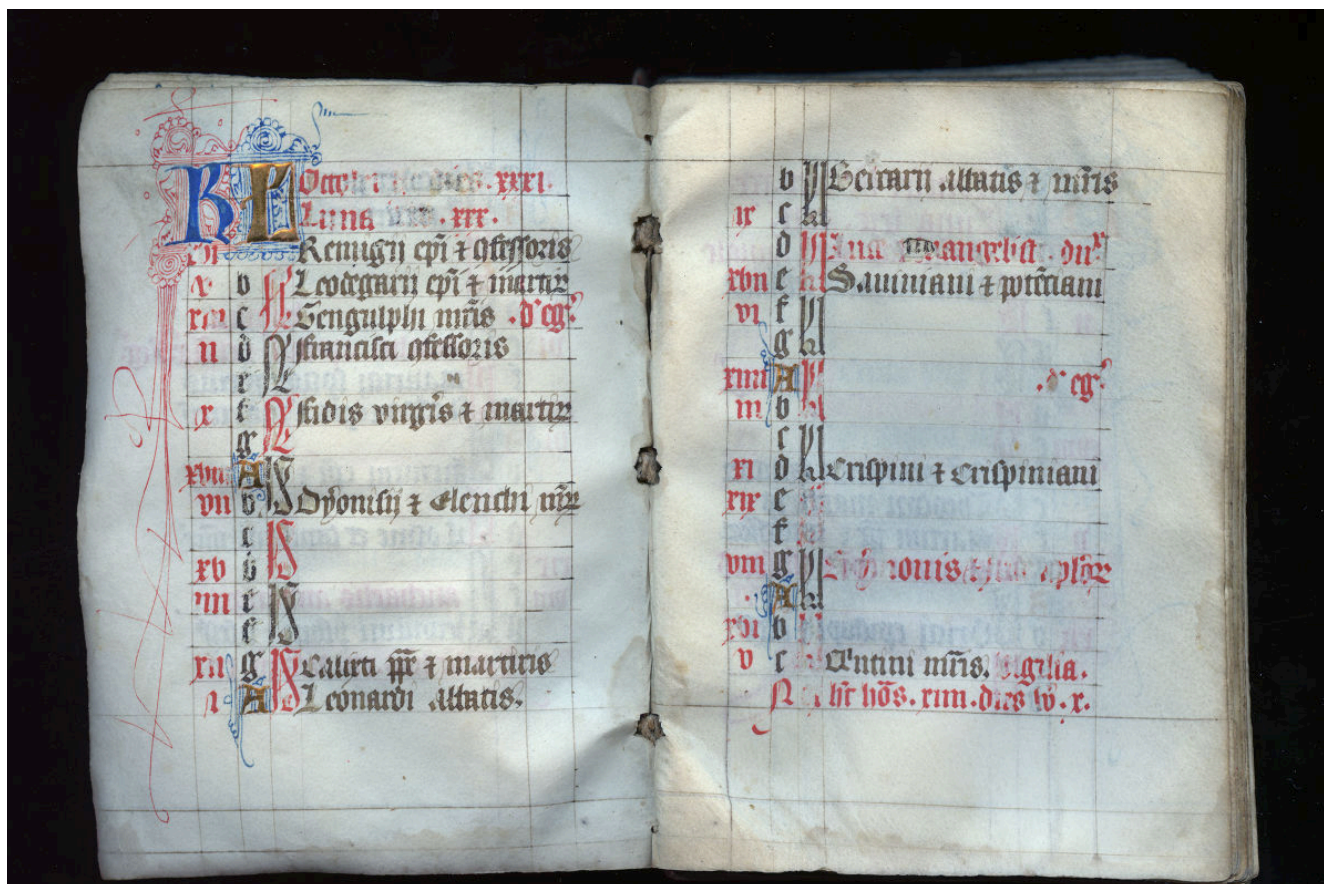 KL October dies .xxxi.
Luna .xxx.
Remigii epi ⁊ ꝯfessoris
x b Leodegarii epi ⁊ martir
c Gengulphi mris .d' eg.
ii d francisci ꝯfessoris
e N
x f fidis virgis ⁊ martir
g
xviii A
vii b Dyonisii ⁊ elenthi mr
c
xv
iiii e
f
xii g Calixti pp ⁊ martiris
i A Leonardi abbatis.
b Bercarii abbatis ⁊ mris
ix c
d Luce evangelist. du
xvii e Saviniani ⁊ potenciani
vi f
g
xiiii A .d' eg.
iii b
c
xi d Crispini ⁊ crispiniani
xix e
f
viii g Symonis apłor
A
xvi b
v c Quintini mris. vigilia.
Nox ht hōs. xiiii. dies vo. x.